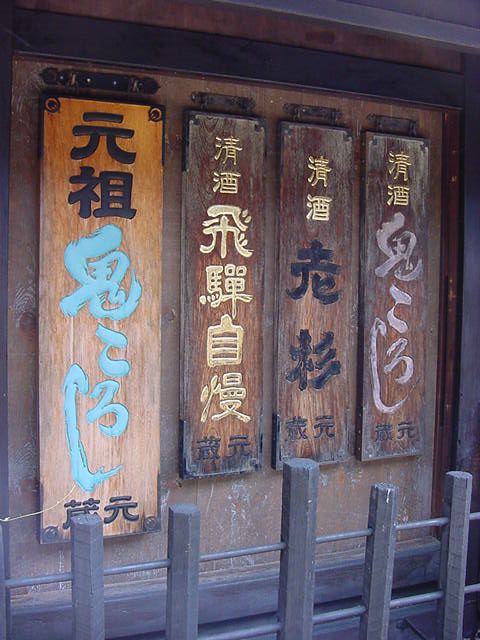 元祖
鬼ころし
元蔵
清酒
飛騨自慢
元蔵
清酒
老杉
元蔵
清酒
鬼ころし
元蔵